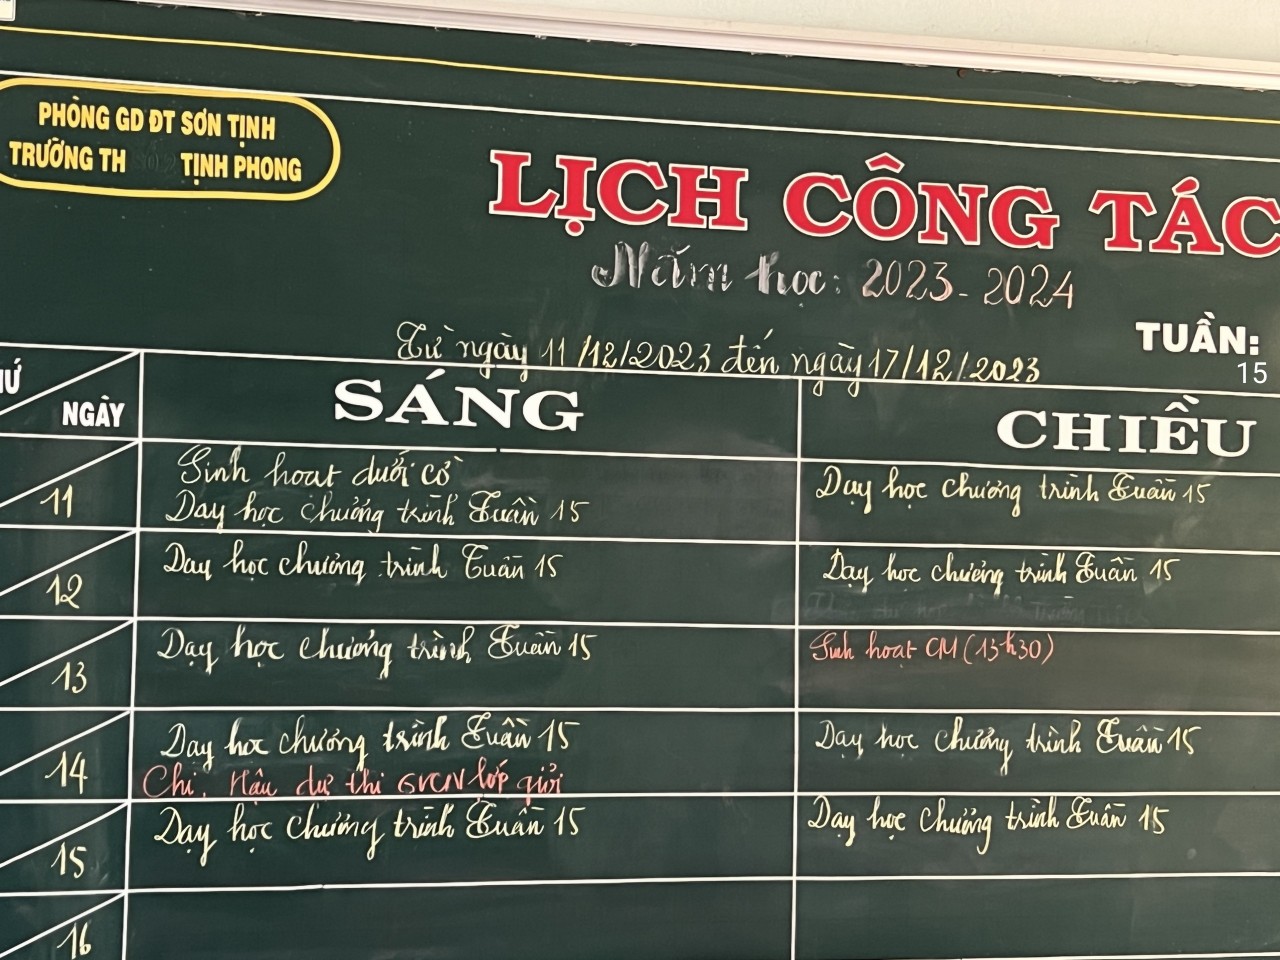 PHÒNG GD ĐT SƠN TỊNH
TRƯỜNG TH TỊNH PHONG
LỊCH CÔNG TÁC
Năm học: 2023-2024
TUẦN: 15
Từ ngày 11/12/2023 đến ngày 17/12/2023
NGÀY
SÁNG
CHIỀU
11
Sinh hoạt dưới cờ
Dạy học chương trình Tuần 15
Dạy học chương trình Tuần 15
12
Dạy học chương trình Tuần 15
Dạy học chương trình Tuần 15
13
Dạy học chương trình Tuần 15
Sinh hoạt CM (13h30)
14
Dạy học chương trình Tuần 15
Chị. Hậu dự thi GVCN lớp giỏi
Dạy học chương trình Tuần 15
15
Dạy học chương trình Tuần 15
Dạy học chương trình Tuần 15
16